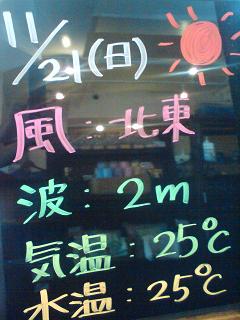 11/21(日)
風:北東
波:2m
気温:25℃
水温:25℃